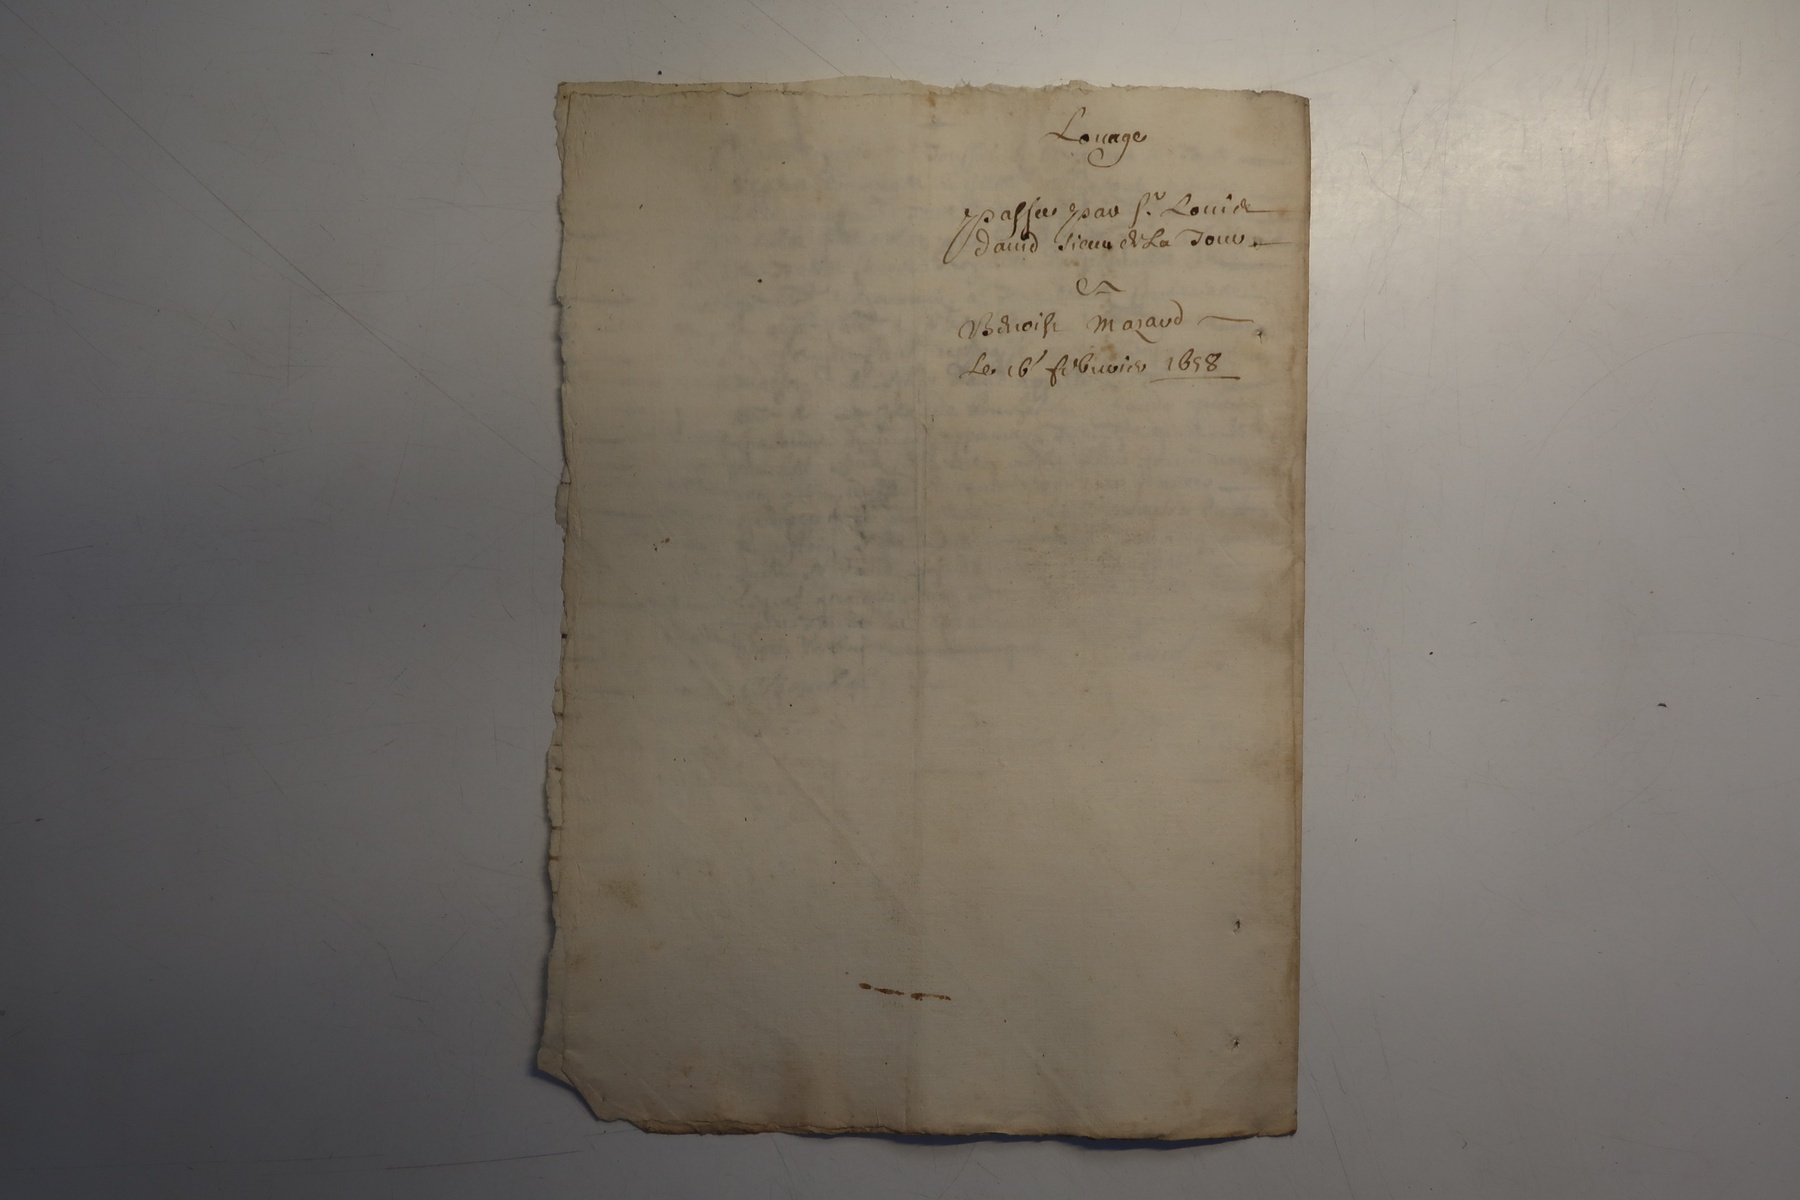 Louage
passee par Sr. Louis
david sieur de La Tour
Et
Benoist Mazaud
Le 16 febvrier 1658